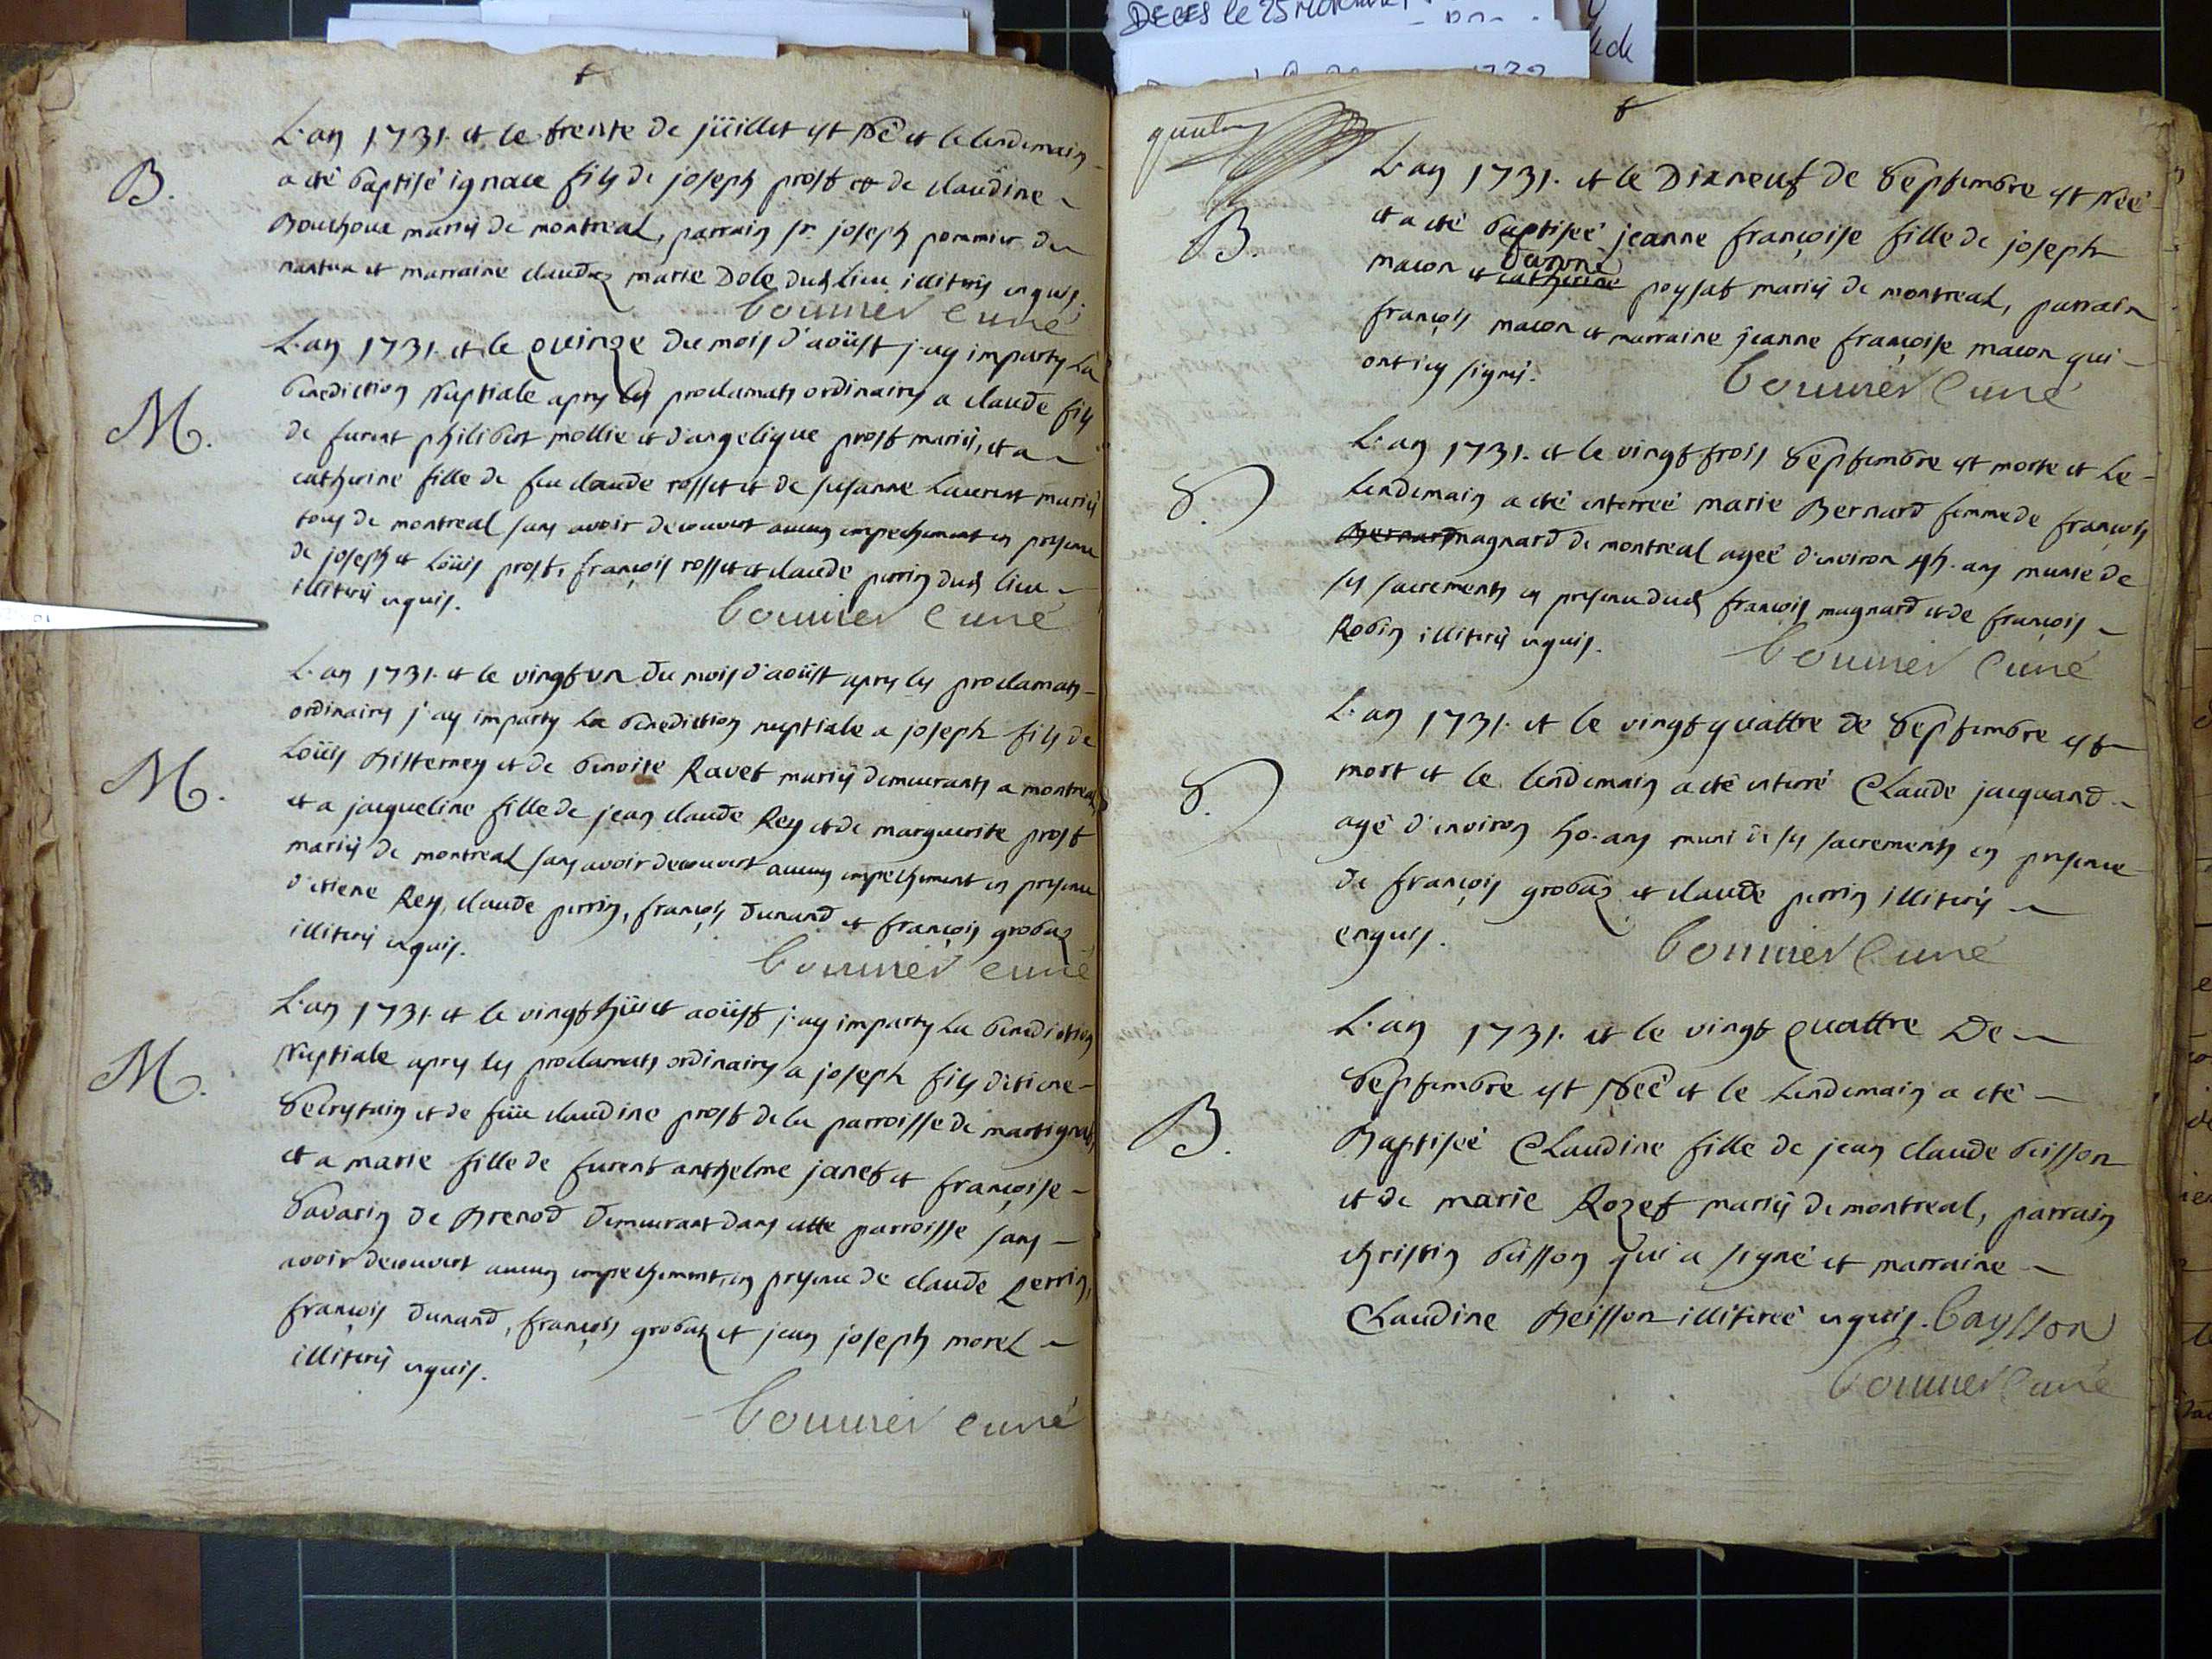 L'an 1731. et le trente de jüillet est né et le lendemain
B.
a été baptisé ignace fils de joseph prost et de claudine
Bouchoux mariés de montreal, parrain sr. joseph pommier de
nantua et marraine claudaz marie Dole dud lieu illiterés enquis.
bouuier curé
L'an 1731. et le quinze du mois d'aoüst j'ay imparty La
benediction Nuptiale apres les proclamats ordinaires a claude fils
M.
de furent philibert mollie et d'angelique prost mariés, et a
catherine fille de feu claude rosset et de susanne Laurent mariés
tous de montreal sans avoir decouvert aucun impechement en presence
de joseph et Loüis prost, françois rosset et claude perrin dud lieu
illiterés enquis.
bouuier curé
L'an 1731. et le vingt un du mois d'aoüst apres les proclamats
ordinaires j'ay imparty La benediction nuptiale a joseph fils de
Loüis Bisterney et de benoite Ravet mariés demeurants a montreal,
M.
et a jacqueline fille de jean claude Rey et de marguerite prost
mariés de montreal sans avoir decouvert aucun impechement en presence
d'etiene Rey, claude perrin, françois Dunand et françois grobaz
illiterés enquis.
bouuier curé
L'an 1731. et le vingt hüict aoüst j'ay imparty La benediction
Nuptiale apres les proclamats ordinaires a joseph fils d'etiene
M.
Secrytain et de füe claudine prost de la parroisse de martignat,
et a marie fille de furent anthelme janet et françoise
Savarin de Brenod demeurant dans cette parroisse sans
avoir decouvert aucun impechement, en presence de claude perrin,
françois Dunand, françois grobaz et jean joseph morel
illiterés enquis.
bouuier curé
L'an 1731. et le Dixneuf de Septembre est Née
B.
et a été baptiseé jeanne françoise fille de joseph
macon et catherine poysat mariés de montreal, parrain
françois macon et marraine jeanne françoise macon qui
ont icy signé.
bouuier curé
L'an 1731. et le vingt trois Septembre est morte et Le
S.
lendemain a été enterreé marie Bernard femme de françois
Bernard magnard de montreal ageé d'environ 45. ans munie de
ses sacrements en presence dud françois magnard et de françois
Robin illiterés enquis.
bouuier curé
L'an 1731. et le vingt quattre de Septembre est
S.
mort et le lendemain a été enterré Claude jacquand
agé d'environ 50. ans muni de ses sacrements en presence
de françois grobaz et claude perrin illiterés
enquis.
bouuier curé
L'an 1731. et le vingt quattre De
Septembre est Née et le Lendemain a été
B.
Baptiseé Claudine fille de jean claude buisson
et de marie Rozet mariés de montreal, parrain
christin buisson qui a signé et marraine
Claudine Beisson illitereé enquis. baysson
bouuier curé